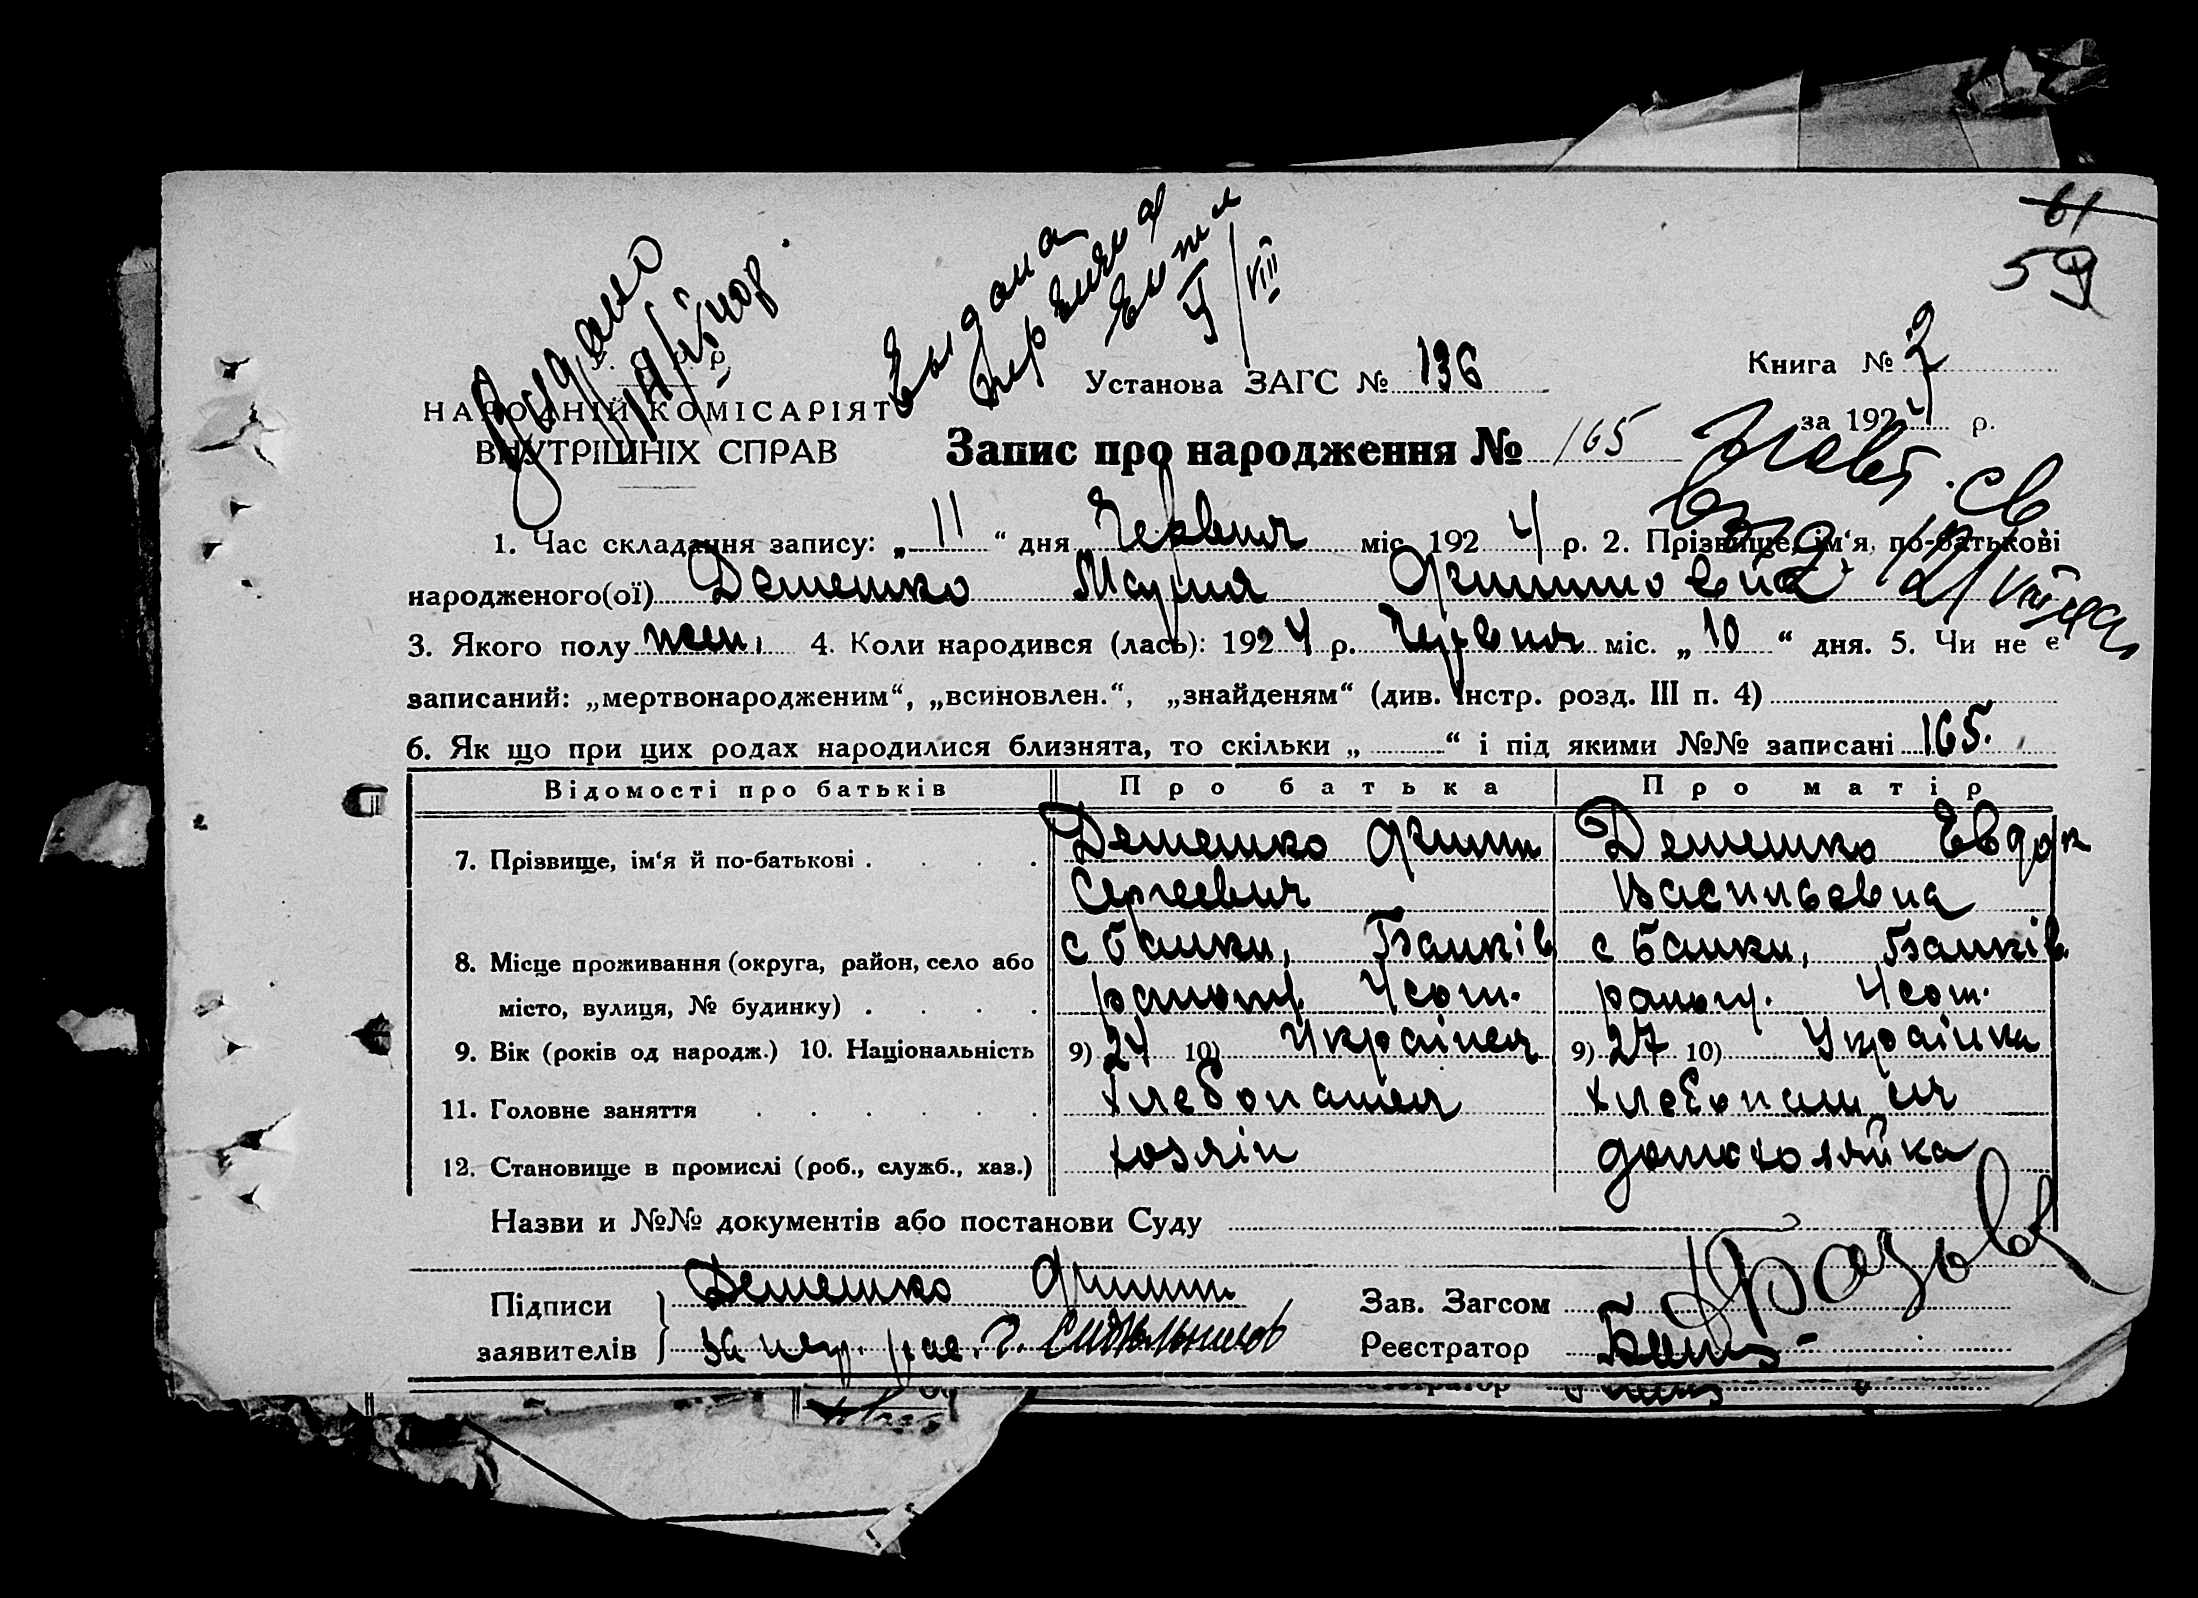 61
59
Видано
Выдана
Установа ЗАГС № 136
Книга № 2
НАРОДНІЙ КОМІСАРІЯТ
за 1924 р.
ВНУТРІШНІХ СПРАВ
Запис про народження № 165
1. Час складання запису: „ 11 “ дня Червня міс. 1924 р. 2. Прізвище, ім‘я, по-батькові
народженого(ої) Демешко Мария
3. Якого полу жен. 4. Коли народився (лась): 1924 р. Червня міс. „ 10 “ дня. 5. Чи не є
записаний: „мертвонародженим“, „всиновлен.“, „знайденям“ (див. інстр. розд. III п. 4)
6. Як що при цих родах народилися близнята, то скільки „ “ і під якими №№ записані 165.
Відомості про батьків Про батька Про матір
7. Прізвище, ім‘я й по-батькові . . . . Демешко Демешко Евдок
Сергеевич Васильевна
8. Місце проживання (округа, район, село або с Банки, Банків с Банки, Банків.
місто, вулиця, № будинку) . . . .
9. Вік (років од народж.) 10. Національність 9) 24 10) Украінец 9) 27 10) Украінка
11. Головне заняття . . . . . . хлебопашец хлебопашец
12. Становище в промислі (роб., служб., хаз.) хозяін домохозяйка
Назви и №№ документів або постанови Суду
Підписи Демешко Зав. Загсом
заявителів Реєстратор